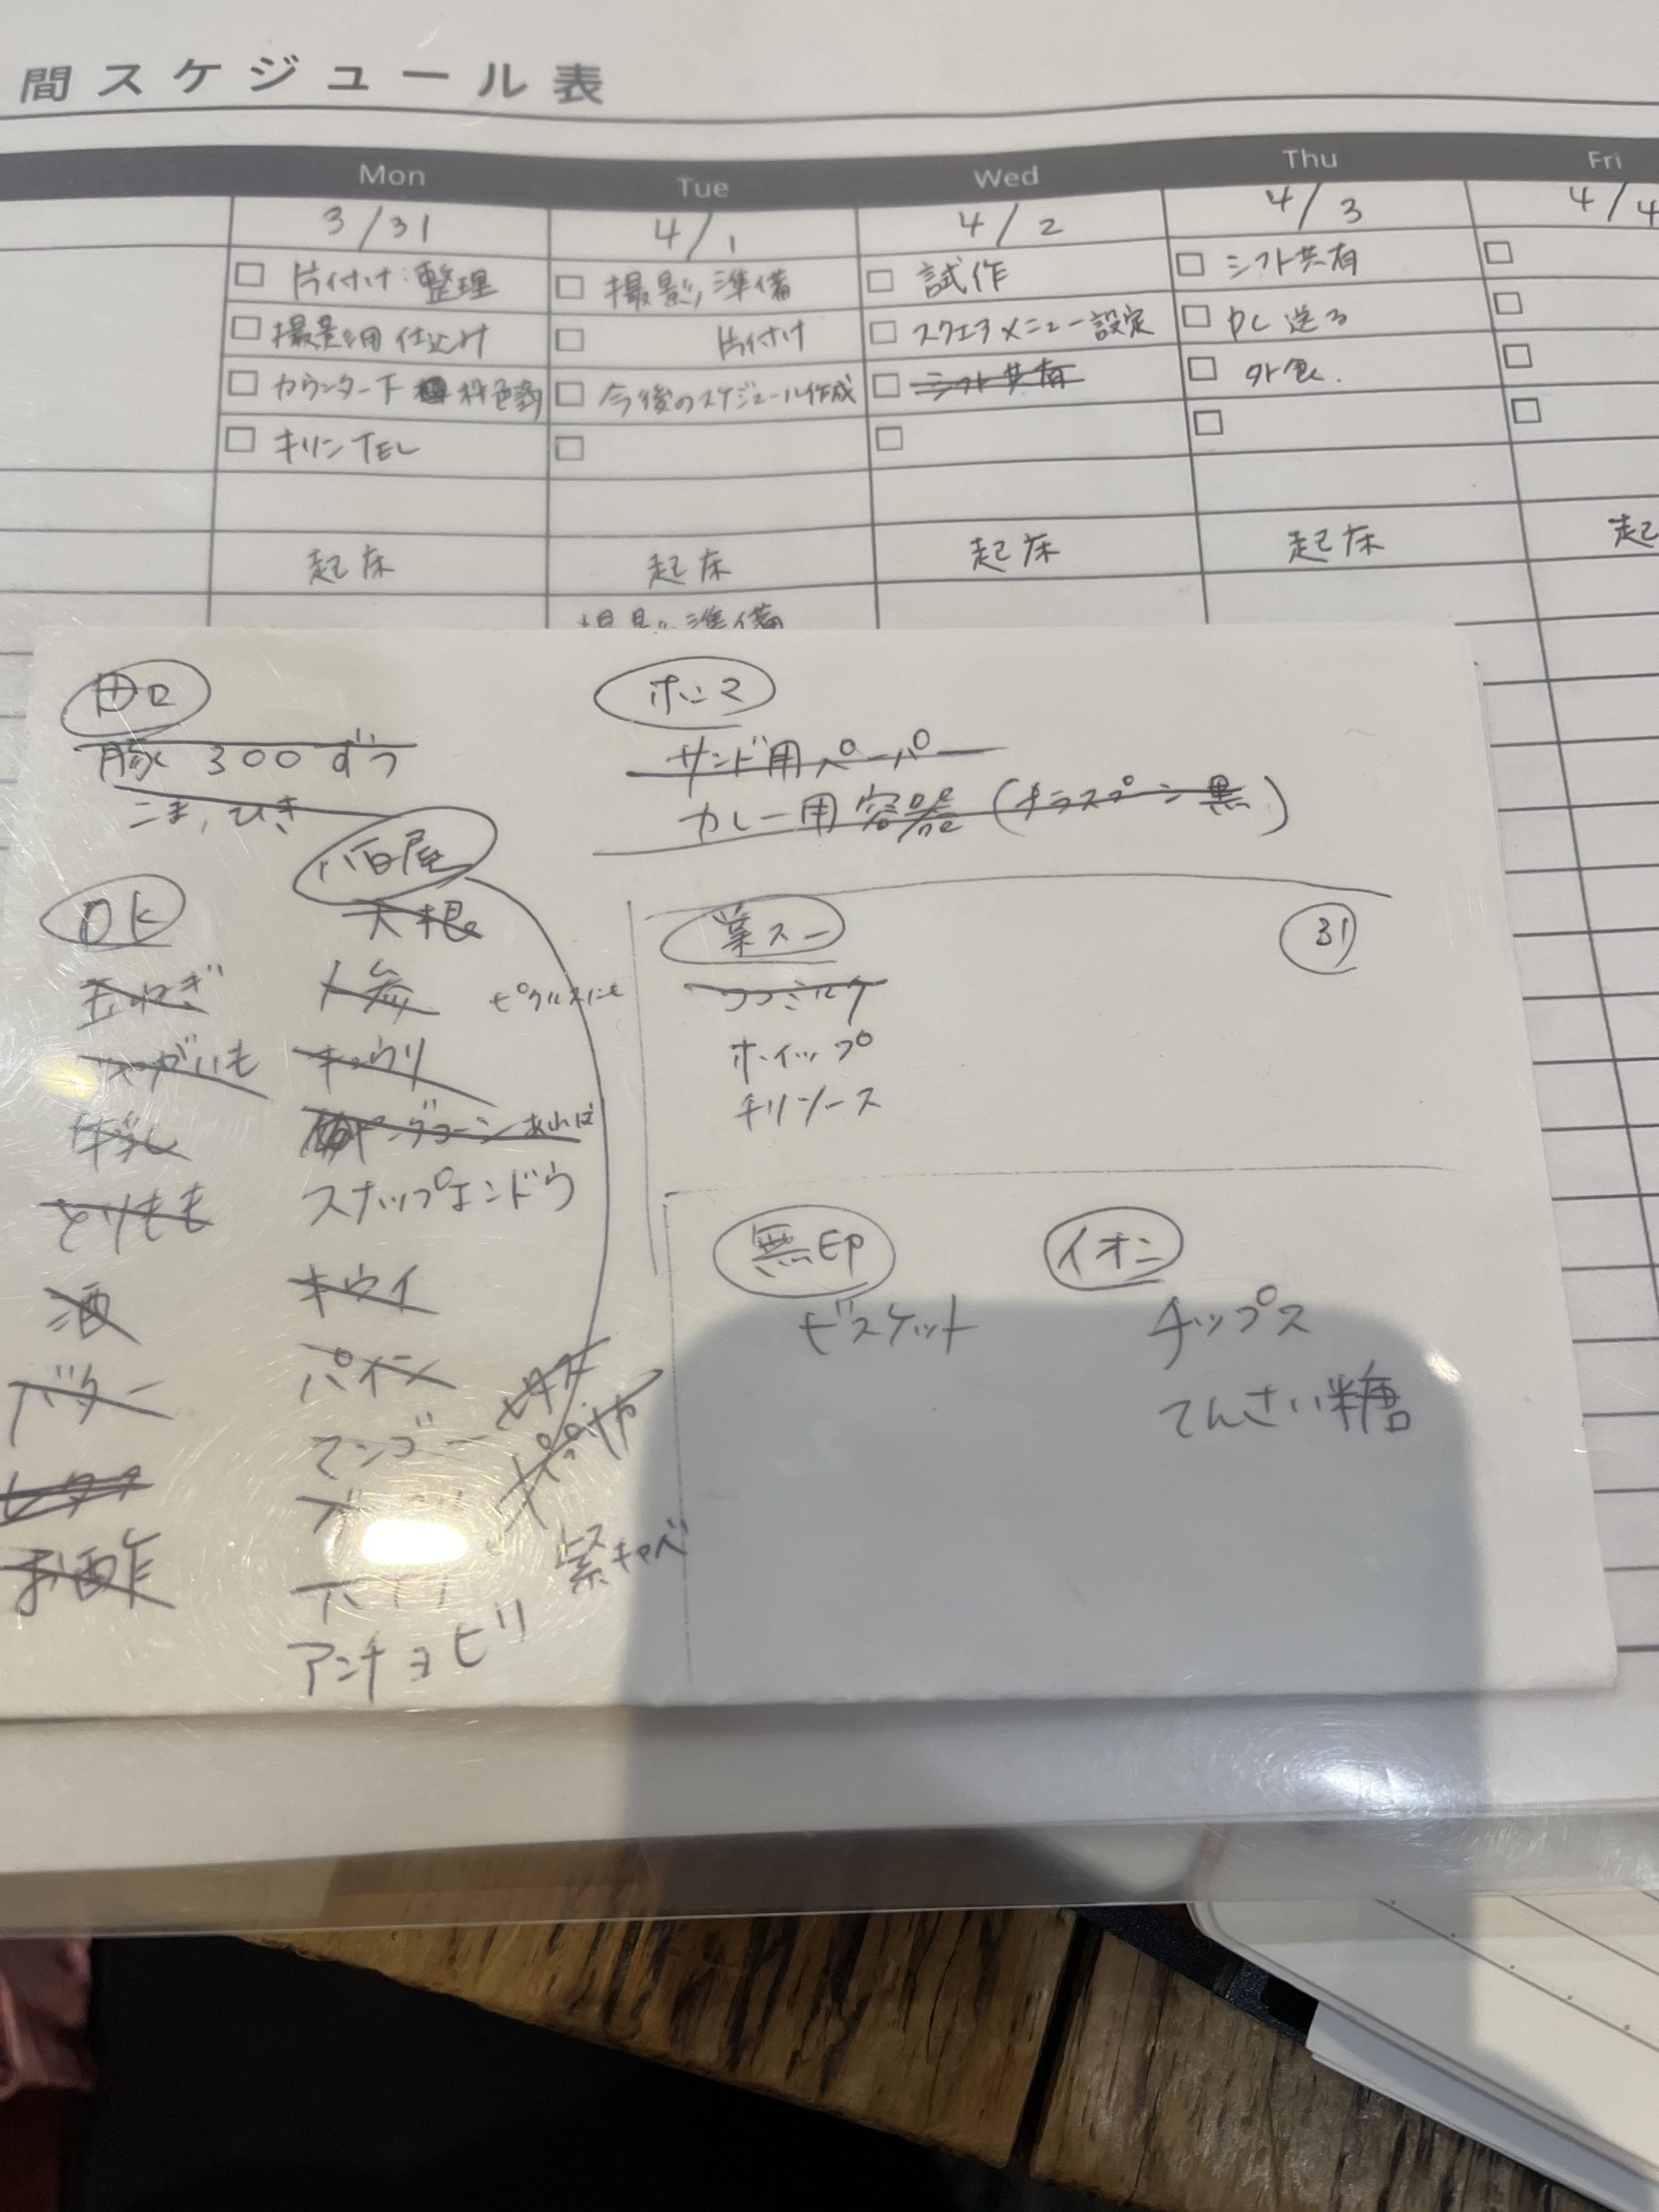 間スケジュール表
Mon Tue Wed Thu Fri
3/31 4/1 4/2 4/3 4/4
片付け・整理 撮影準備 試作 シフト共有
撮影用仕込み 片付け スクエアメニュー設定 DC送る
カウンター下 今後のスケジュール作成 シフト共有 外食.
キリンTEL
起床 起床 起床 起床 起
撮影準備
田口
豚 300ずつ
こま, ひき
ホンマ
サンド用ペーパー
カレー用容器 (キラスプーン黒)
八百屋
大根
人参 ピクルスにも
キュウリ
ヤングコーンあれば
スナップエンドウ
キウイ
パイン
マンゴー
紫キャベ
アンチョビ
OK
玉ねぎ
じゃがいも
牛乳
とりもも
酒
バター
ピタタ
お酢
業スー
31
ココミルク
ホイップ
チリソース
無印
ビスケット
イオン
チップス
てんさい糖